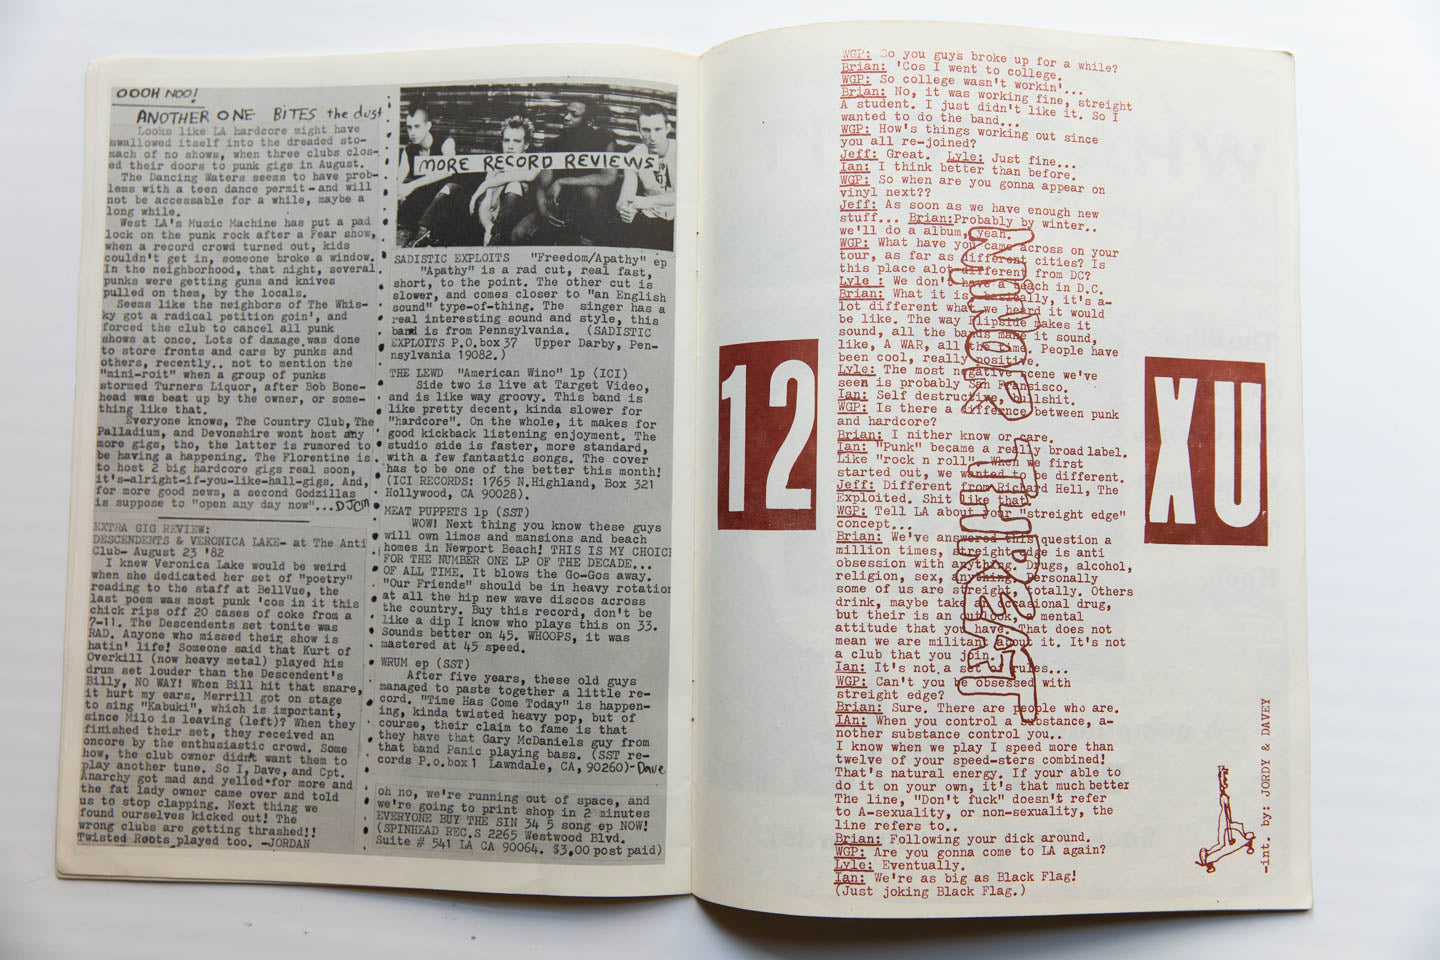 OOOH NOO!
ANOTHER ONE BiTES the dust
Looks like LA hardcore might have
swallowed itself into the dreaded sto-
mach of no shows, when three clubs clos-
ed their doors to punk gigs in August.
The Dancing Waters seems to have prob-
lems with a teen dance permit-and will
not be accessable for a while, maybe a
long while.
West LA's Music Machine has put a pad
lock on the punk rock after a Fear show,
when a record crowd turned out, kids
couldn't get in, someone broke a window.
In the neighborhood, that night, several
punks were getting guns and knives
pulled on them, by the locals.
Seems like the neighbors of The Whis-
ky got a radical petition goin', and
forced the club to cancel all punk
shows at once. Lots of damage was done
to store fronts and cars by punks and
others, recently.. not to mention the
"mini-roit" when a group of punks
stormed Turners Liquor, after Bob Bone-
head was beat up by the owner, or some-
thing like that.
Everyone knows, The Country Club, The
Palladium, and Devonshire wont host any
more gigs, tho, the latter is rumored to
be having a happening. The Florentine is
to host 2 big hardcore gigs real soon,
it's-alright-if-you-like-hall-gigs. And,
for more good news, a second Godzillas
is suppose to "open any day now"...DJCM
EXTRA GIG REVIEW:
DESCENDENTS & VERONICA LAKE- at The Anti
Club- August 23 '82
I knew Veronica Lake would be weird
when she dedicated her set of "poetry"
reading to the staff at BellVue, the
last poem was most punk 'cos in it this
chick rips off 20 cases of coke from a
7-11. The Descendents set tonite was
RAD. Anyone who missed their show is
hatin' life! Someone said that Kurt of
Overkill (now heavy metal) played his
drum set louder than the Descendent's
Billy, NO WAY! When Bill hit that snare,
it hurt my ears. Merrill got on stage
to sing "Kabuki", which is important,
since Milo is leaving (left)? When they
finished their set, they received an
oncore by the enthusiastic crowd. Some
how, the club owner didn't want them to
play another tune. So I, Dave, and Cpt.
Anarchy got mad and yelled for more and
the fat lady owner came over and told
us to stop clapping. Next thing we
found ourselves kicked out! The
wrong clubs are getting thrashed!!
Twisted Roots played too. -JORDAN
MORE RECORD REVIEWS
SADISTIC EXPLOITS "Freedom/Apathy" ep
"Apathy" is a rad cut, real fast,
short, to the point. The other cut is
slower, and comes closer to "an English
sound" type-of-thing. The singer has a
real interesting sound and style, this
band is from Pennsylvania. (SADISTIC
EXPLOITS P.O.box 37 Upper Darby, Pen-
nsylvania 19082.)
THE LEWD "American Wino" lp (ICI)
Side two is live at Target Video,
and is like way groovy. This band is
like pretty decent, kinda slower for
"hardcore". On the whole, it makes for
good kickback listening enjoyment. The
studio side is faster, more standard,
with a few fantastic songs. The cover
has to be one of the better this month!
(ICI RECORDS: 1765 N.Highland, Box 321
Hollywood, CA 90028).
MEAT PUPPETS lp (SST)
WOW! Next thing you know these guys
will own limos and mansions and beach
homes in Newport Beach! THIS IS MY CHOICE
FOR THE NUMBER ONE LP OF THE DECADE...
OF ALL TIME. It blows the Go-Gos away.
"Our Friends" should be in heavy rotation
at all the hip new wave discos across
the country. Buy this record, don't be
like a dip I know who plays this on 33.
Sounds better on 45. WHOOPS, it was
mastered at 45 speed.
WRUM ep (SST)
After five years, these old guys
managed to paste together a little re-
cord. "Time Has Come Today" is happen-
ing, kinda twisted heavy pop, but of
course, their claim to fame is that
they have that Gary McDaniels guy from
that band Panic playing bass. (SST re-
cords P.O.box 1 Lawndale, CA, 90260)-Dave
oh no, we're running out of space, and
we're going to print shop in 2 minutes
EVERYONE BUY THE SIN 34 5 song ep NOW!
(SPINHEAD REC.S 2265 Westwood Blvd.
Suite # 541 LA CA 90064. $3,00 post paid)
WGP: So you guys broke up for a while?
Brian: 'Cos I went to college.
WGP: So college wasn't workin'...
Brian: No, it was working fine, streight
A student. I just didn't like it. So I
wanted to do the band...
WGP: How's things working out since
you all re-joined?
Jeff: Great. Lyle: Just fine...
Ian: I think better than before.
WGP: So when are you gonna appear on
vinyl next??
Jeff: As soon as we have enough new
stuff... Brian:Probably by winter..
we'll do a album, yeah.
WGP: What have you came across on your
tour, as far as different cities? Is
this place alot different from DC?
Lyle : We don't have a beach in D.C.
Brian: What it is, basically, it's a-
lot different what we heard it would
be like. The way Flipside makes it
sound, all the bands make it sound,
like, A WAR, all the time. People have
been cool, really positive.
Lyle: The most negative scene we've
seen is probably San Fransisco.
Ian: Self destructive, bullshit.
WGP: Is there a differnce between punk
and hardcore?
Brian: I nither know or care.
Ian: "Punk" became a really broad label.
Like "rock n roll". When we first
started out, we wanted to be different.
Jeff: Different from Richard Hell, The
Exploited. Shit like that.
WGP: Tell LA about your "streight edge"
concept...
Brian: We've answered this question a
million times, streight edge is anti
obsession with anything. Drugs, alcohol,
religion, sex, anything. Personally
some of us are streight, totally. Others
drink, maybe take an occasional drug,
but their is an outlook, a mental
attitude that you have. That does not
mean we are militant about it. It's not
a club that you join.
Ian: It's not a set of rules...
WGP: Can't you be obsessed with
streight edge?
Brian: Sure. There are people who are.
IAn: When you control a substance, a-
nother substance control you..
I know when we play I speed more than
twelve of your speed-sters combined!
That's natural energy. If your able to
do it on your own, it's that much better
The line, "Don't fuck" doesn't refer
to A-sexuality, or non-sexuality, the
line refers to..
Brian: Following your dick around.
WGP: Are you gonna come to LA again?
Lyle: Eventually.
Ian: We're as big as Black Flag!
(Just joking Black Flag.)
MINOR THREAT
12
XU
-int. by: JORDY & DAVEY